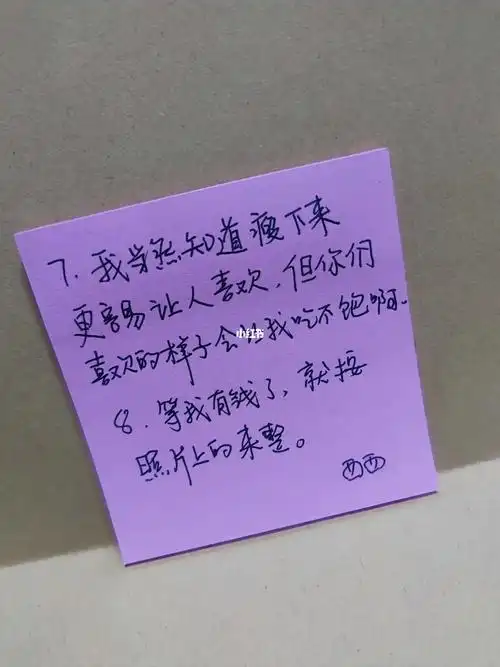 7. 我当然知道瘦下来
更容易让人喜欢,但你们
喜欢的样子会让我吃不饱啊。
8. 等我有钱了,就按
照片上的来整。
西西
小红书